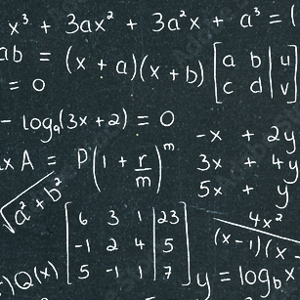 x³ + 3ax² + 3a²x + a³ = (
ab = (x + a)(x + b) [a b | u
= 0 c d | v]
- log₉(3x + 2) = 0
-x + 2y
x A = P(1 + r/m)ᵐ 3x + 4y
5x + y
√a² + b²
[6 3 1 | 23
-1 2 4 | 5
5 -1 1 | 7]
4x²
(x - 1)(x -
)Q(x) y = log_b x